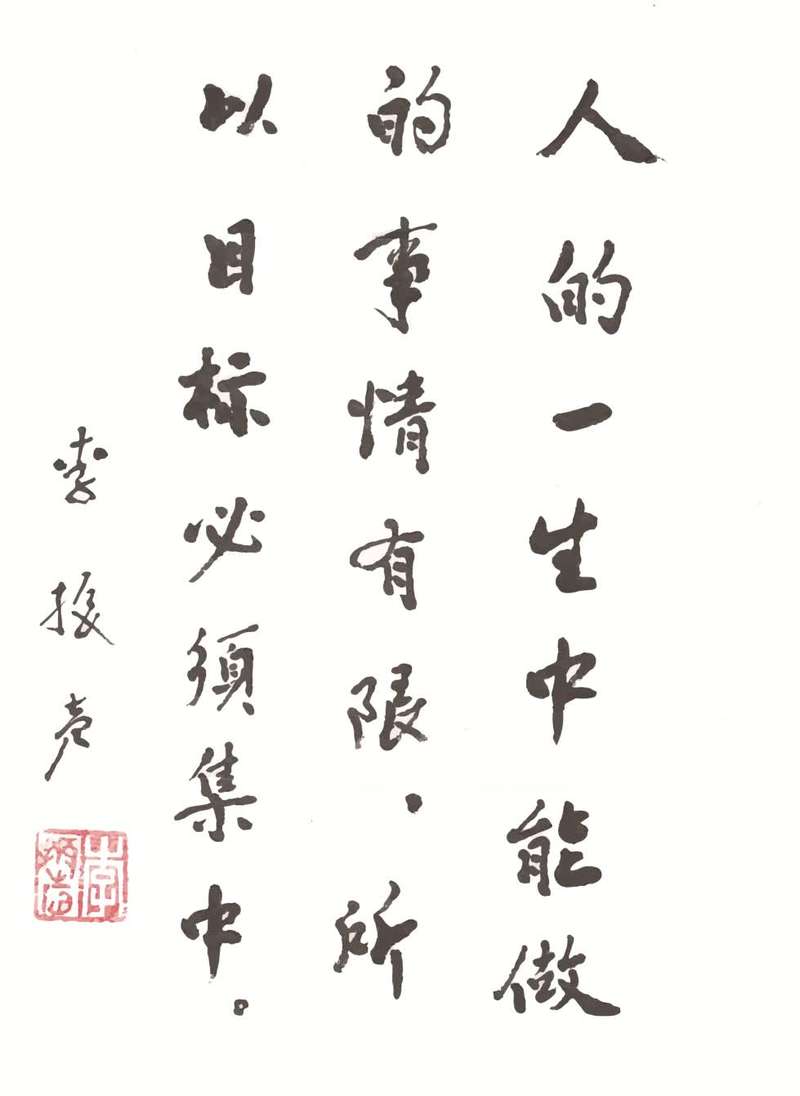 人的一生中能做
的事情有限，所
以目标必須集中。
李振声